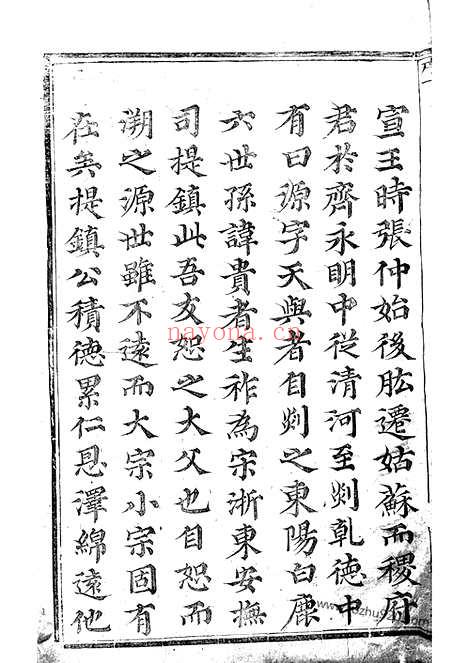 宣王時張仲始後肱遷姑蘇而稷府
君於齊永明中從清河至剡乾德中
有曰源字天與者自剡之東陽白鹿
六世孫諱貴者生祚為宗浙東安撫
司提鎮此吾友恕之大父也自恕而
溯之源世雖不遠而大宗小宗固有
在矣提鎮公積德累仁恩澤綿遠他
nayona.cn